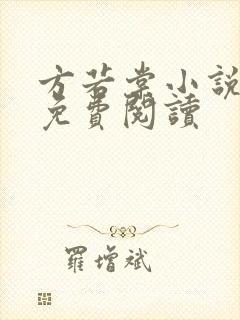 方若棠小說
免費閱讀
羅增斌